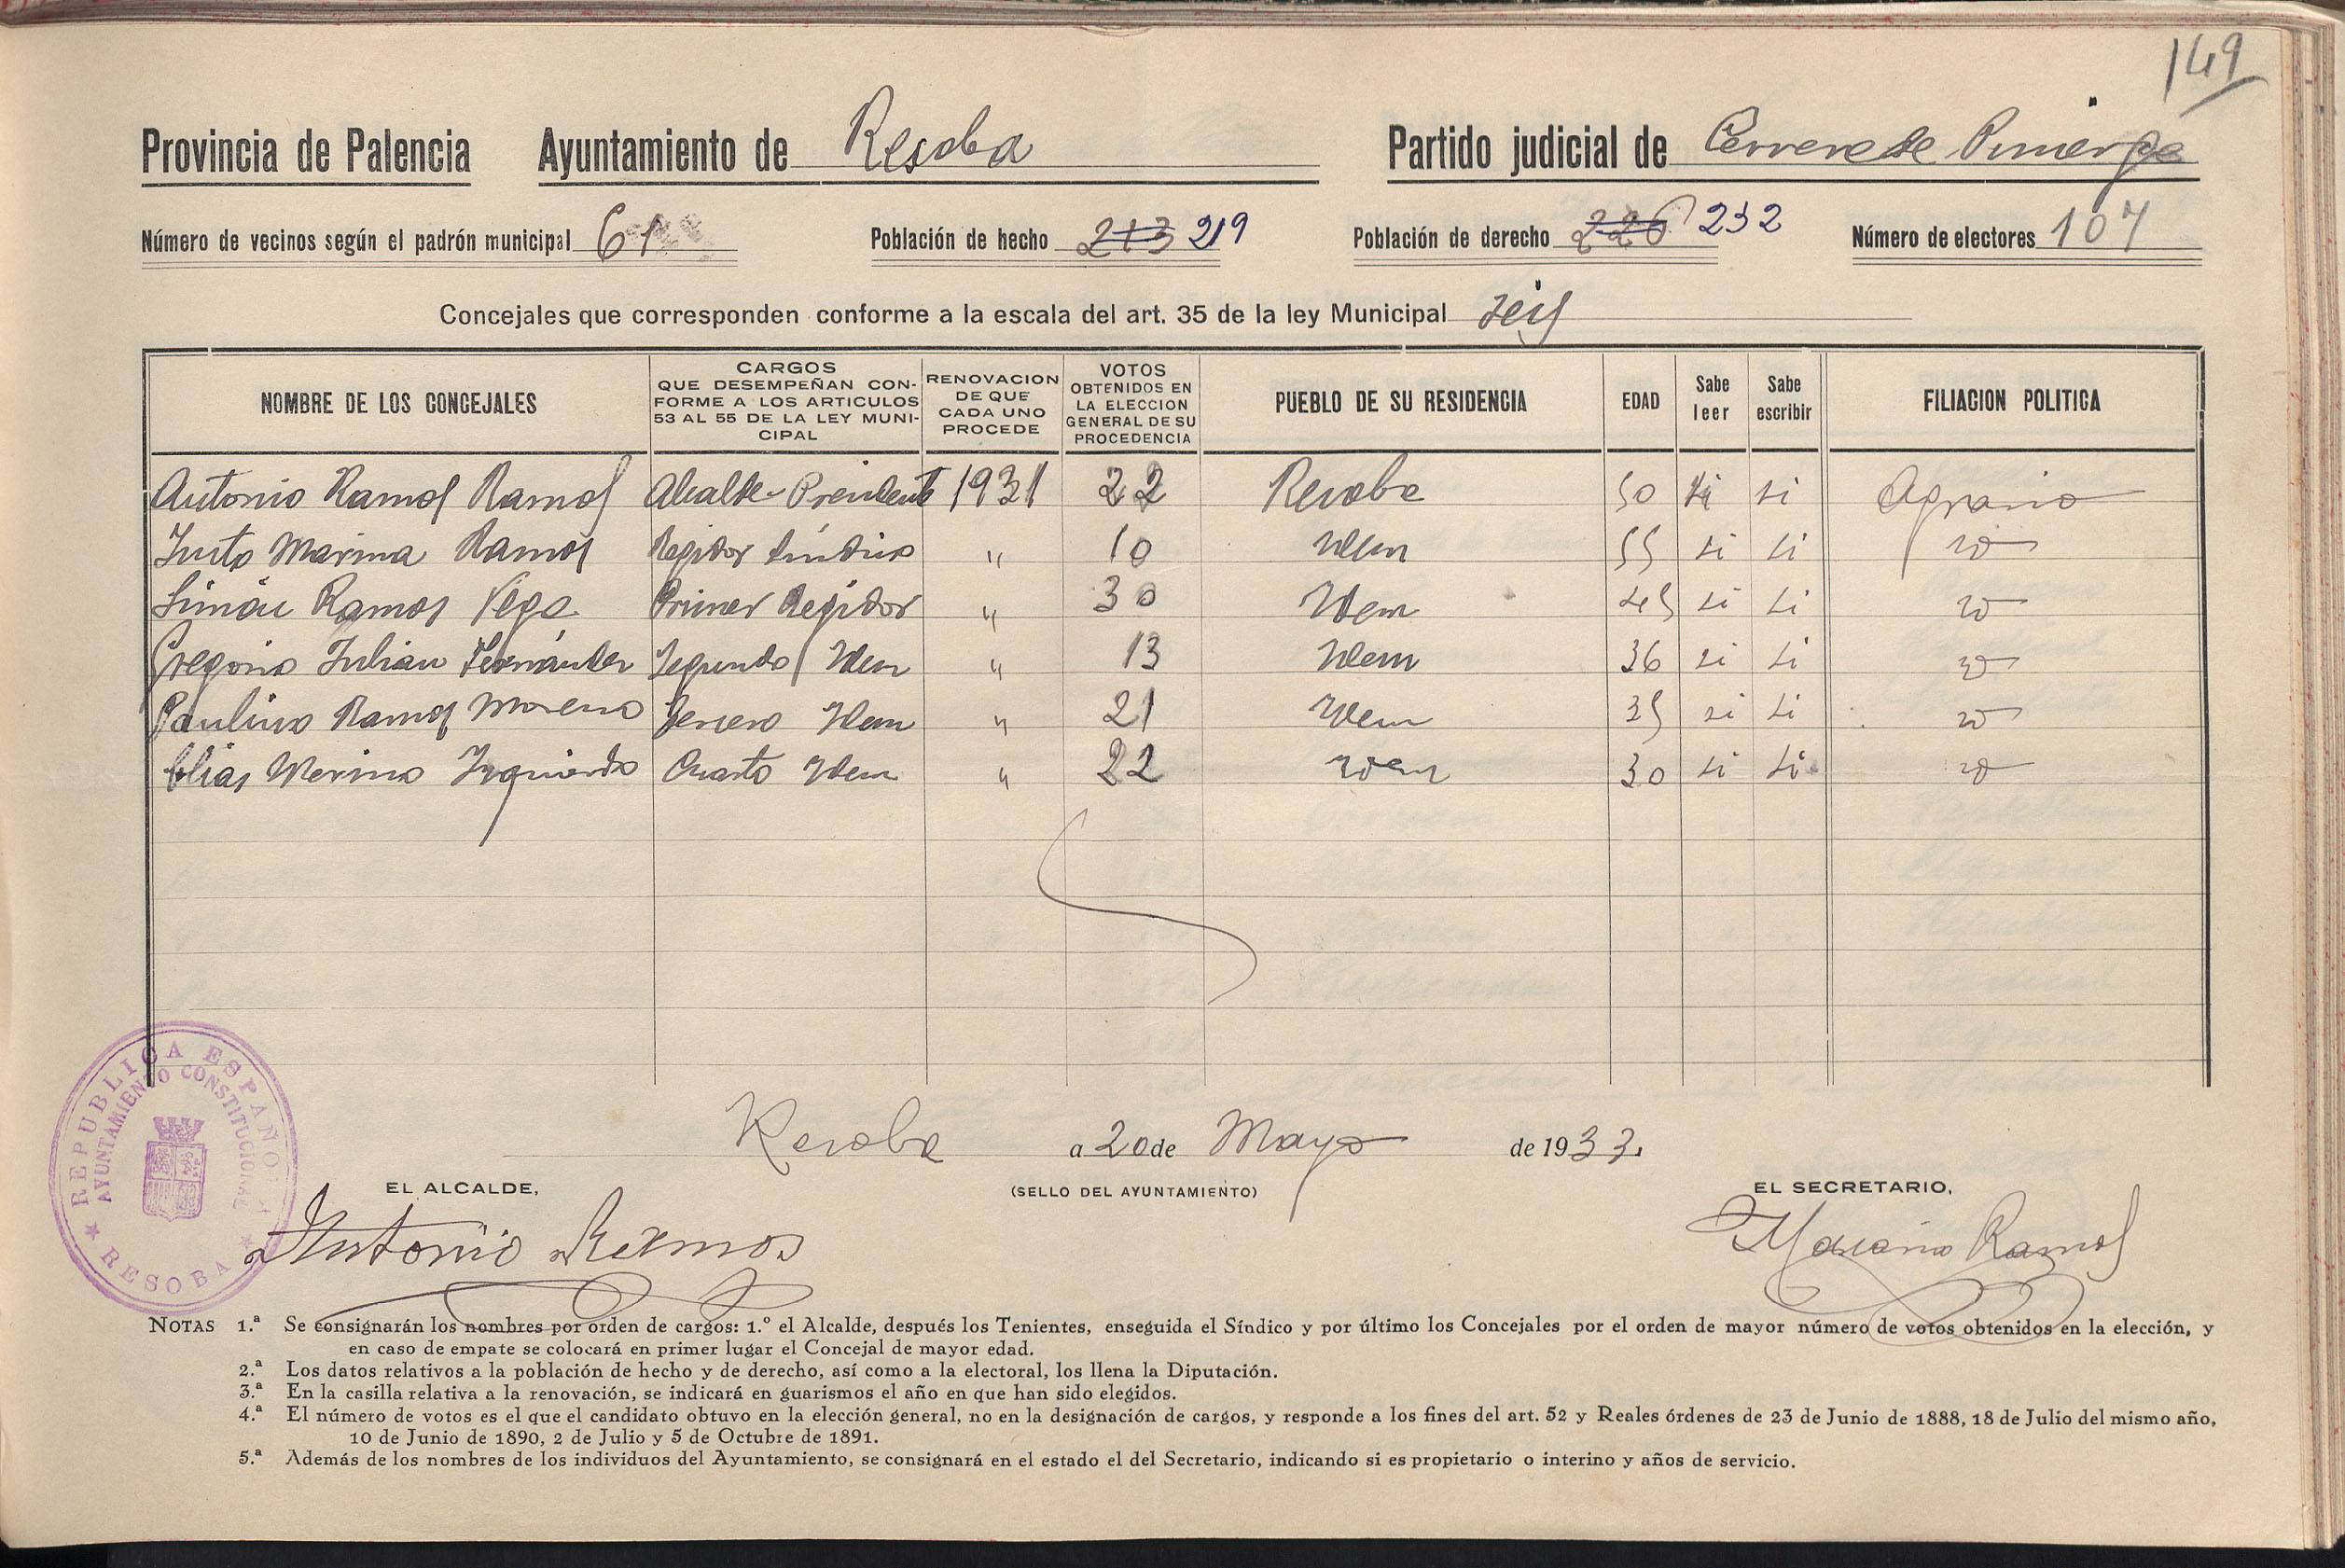 149
Provincia de Palencia Ayuntamiento de Resoba Partido judicial de Cervera de Pisuerga
Número de vecinos según el padrón municipal 61 Población de hecho 213 219 Población de derecho 226 232 Número de electores 107
Concejales que corresponden conforme a la escala del art. 35 de la ley Municipal seis
NOMBRE DE LOS CONCEJALES
CARGOS
QUE DESEMPEÑAN CON-
FORME A LOS ARTICULOS
53 AL 55 DE LA LEY MUNI-
CIPAL
RENOVACION
DE QUE
CADA UNO
PROCEDE
VOTOS
OBTENIDOS EN
LA ELECCION
GENERAL DE SU
PROCEDENCIA
PUEBLO DE SU RESIDENCIA
EDAD
Sabe
leer
Sabe
escribir
FILIACION POLITICA
Antonio Ramos Ramos Alcalde-Presidente 1931 22 Resoba 50 si si Agrario
Justo Marina Ramos Regidor Síndico " 10 Idem 55 si si id
Simón Ramos Vega Primer Regidor " 30 Idem 45 si si id
Gregorio Julian Fernández Segundo Idem " 13 Idem 36 si si id
Paulino Ramos Moreno Tercero Idem " 21 Idem 35 si si id
Elias Merino Izquierdo Cuarto Idem " 22 Idem 30 si si id
Resoba a 20 de Mayo de 1933.
EL ALCALDE, (SELLO DEL AYUNTAMIENTO) EL SECRETARIO,
Antonio Ramos Macario Ramos
REPUBLICA ESPAÑOLA
AYUNTAMIENTO CONSTITUCIONAL
★ RESOBA ★
NOTAS 1.ª Se consignarán los nombres por orden de cargos: 1.º el Alcalde, después los Tenientes, enseguida el Síndico y por último los Concejales por el orden de mayor número de votos obtenidos en la elección, y
en caso de empate se colocará en primer lugar el Concejal de mayor edad.
2.ª Los datos relativos a la población de hecho y de derecho, así como a la electoral, los llena la Diputación.
3.ª En la casilla relativa a la renovación, se indicará en guarismos el año en que han sido elegidos.
4.ª El número de votos es el que el candidato obtuvo en la elección general, no en la designación de cargos, y responde a los fines del art. 52 y Reales órdenes de 23 de Junio de 1888, 18 de Julio del mismo año,
10 de Junio de 1890, 2 de Julio y 5 de Octubre de 1891.
5.ª Además de los nombres de los individuos del Ayuntamiento, se consignará en el estado el del Secretario, indicando si es propietario o interino y años de servicio.